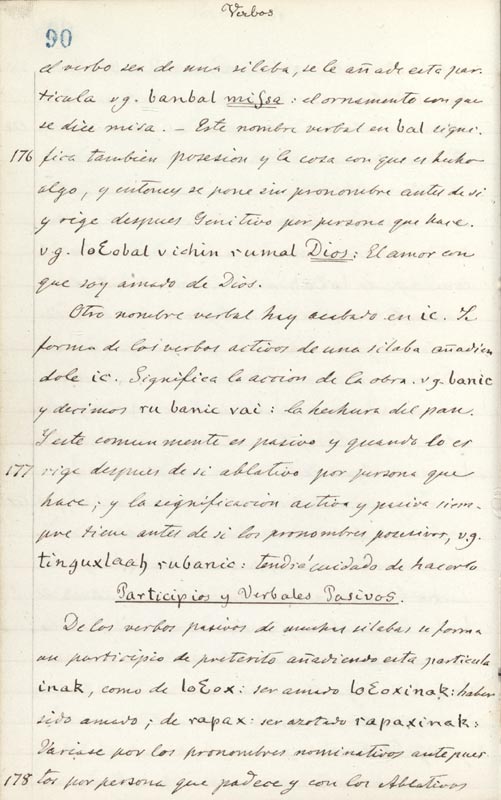 Verbos
90
el verbo sea de una silaba, se le añade esta par-
ticula vg. banbal missa: el ornamento con que
se dice misa. – Este nombre verbal en bal signi-
176 fica tambien posesion y la cosa con que es hecho
algo, y entonces se pone sin pronombre antes de si
y rige despues Genitivo por persona que hace.
vg. loƐobal vichin rumal Dios: El amor con
que soy amado de Dios.
Otro nombre verbal hay acabado en ic. Se
forma de los verbos activos de una silaba añadien
dole ic. Significa la accion de la obra. vg. banic
y decimos ru banic vai: la hechura del pan.
Y este comunmente es pasivo y quando lo es
177 rige despues de si ablativo por persona que
hace; y la significacion activa y pasiva siem-
pre tiene antes de si los pronombres posesivos, v.g.
tinguxlaah rubanic: tendré cuidado de hacerlo
Participios y Verbales Pasivos.
De los verbos pasivos de muchas silabas se forma
un participio de preterito añadiendo esta particula
inak, como de loƐox: ser amado loƐoxinak: haber
sido amado; de rapax: ser azotado rapaxinak:
Variase por los pronombres nominativos antepues
178 tos por persona que padece y con los Ablativos